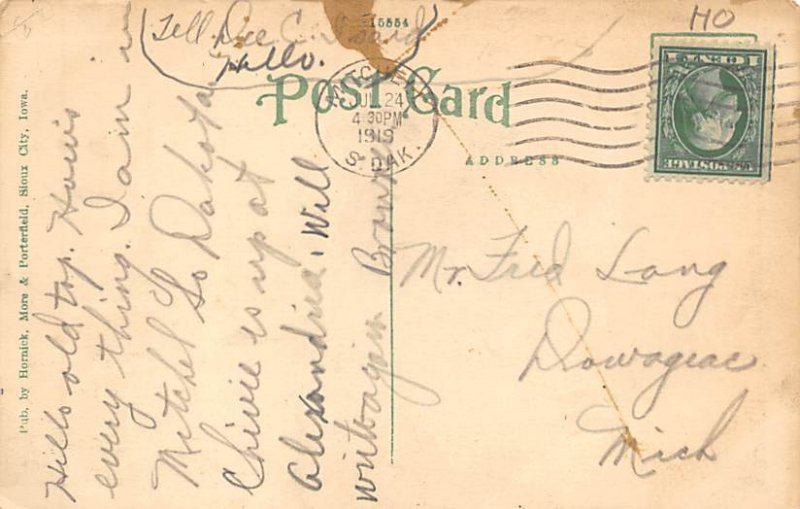 Tell Dee C. Isard
Hello.
15854
Post Card
ADDRESS
MITCHELL
JUL 24
4 30PM
1919
S. DAK.
HO
1 CENT 1
U.S. POSTAGE
Pub. by Hornick, More & Porterfield, Sioux City, Iowa.
Hillo old top. How is
every thing. I am in
Mitchel So Dakota
Chivie is up at
Alexandria. Will
writ again
Mr. Fred Long
Dowageac
Mich